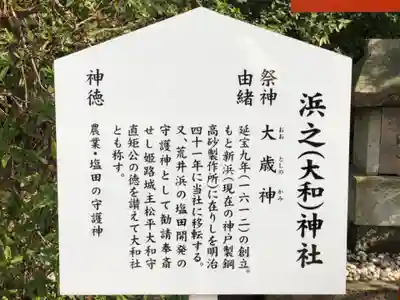 浜之(大和)神社
祭神 大歳神
おお としの かみ
由緒
延宝九年(一六一二)の創立。
もと新浜(現在の神戸製鋼
高砂製作所)に在りしを明治
四十一年に当社に移転する。
又、荒井浜の塩田開発の
守護神として勧請奉斎
せし姫路城主松平大和守
直矩公の徳を讃えて大和社
とも称す。
神徳
農業・塩田の守護神